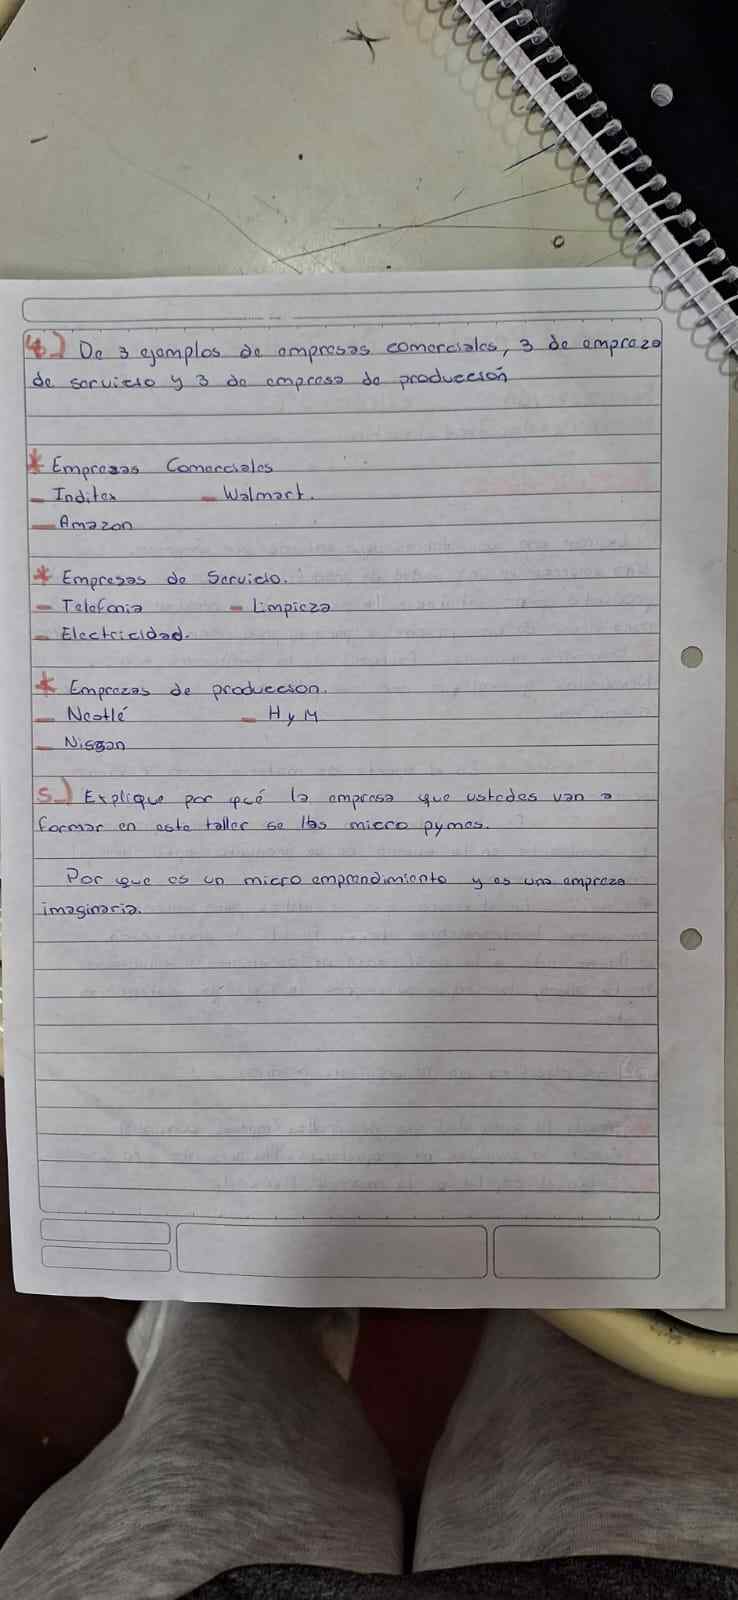 4-) De 3 ejemplos de empresas comerciales, 3 de empreza
de servicio y 3 de empresa de producción
* Emprezas Comerciales
- Inditex - Walmart.
- Amazon
* Empresas de Servicio.
- Telefonia - Limpieza
- Electricidad.
* Emprezas de produccion.
- Nestlé - H y M
- Nissan
5-) Explique por qué la empresa que ustedes van a
formar en este taller se las micro pymes.
Por que es un micro emprendimiento y es una empreza
imaginaria.